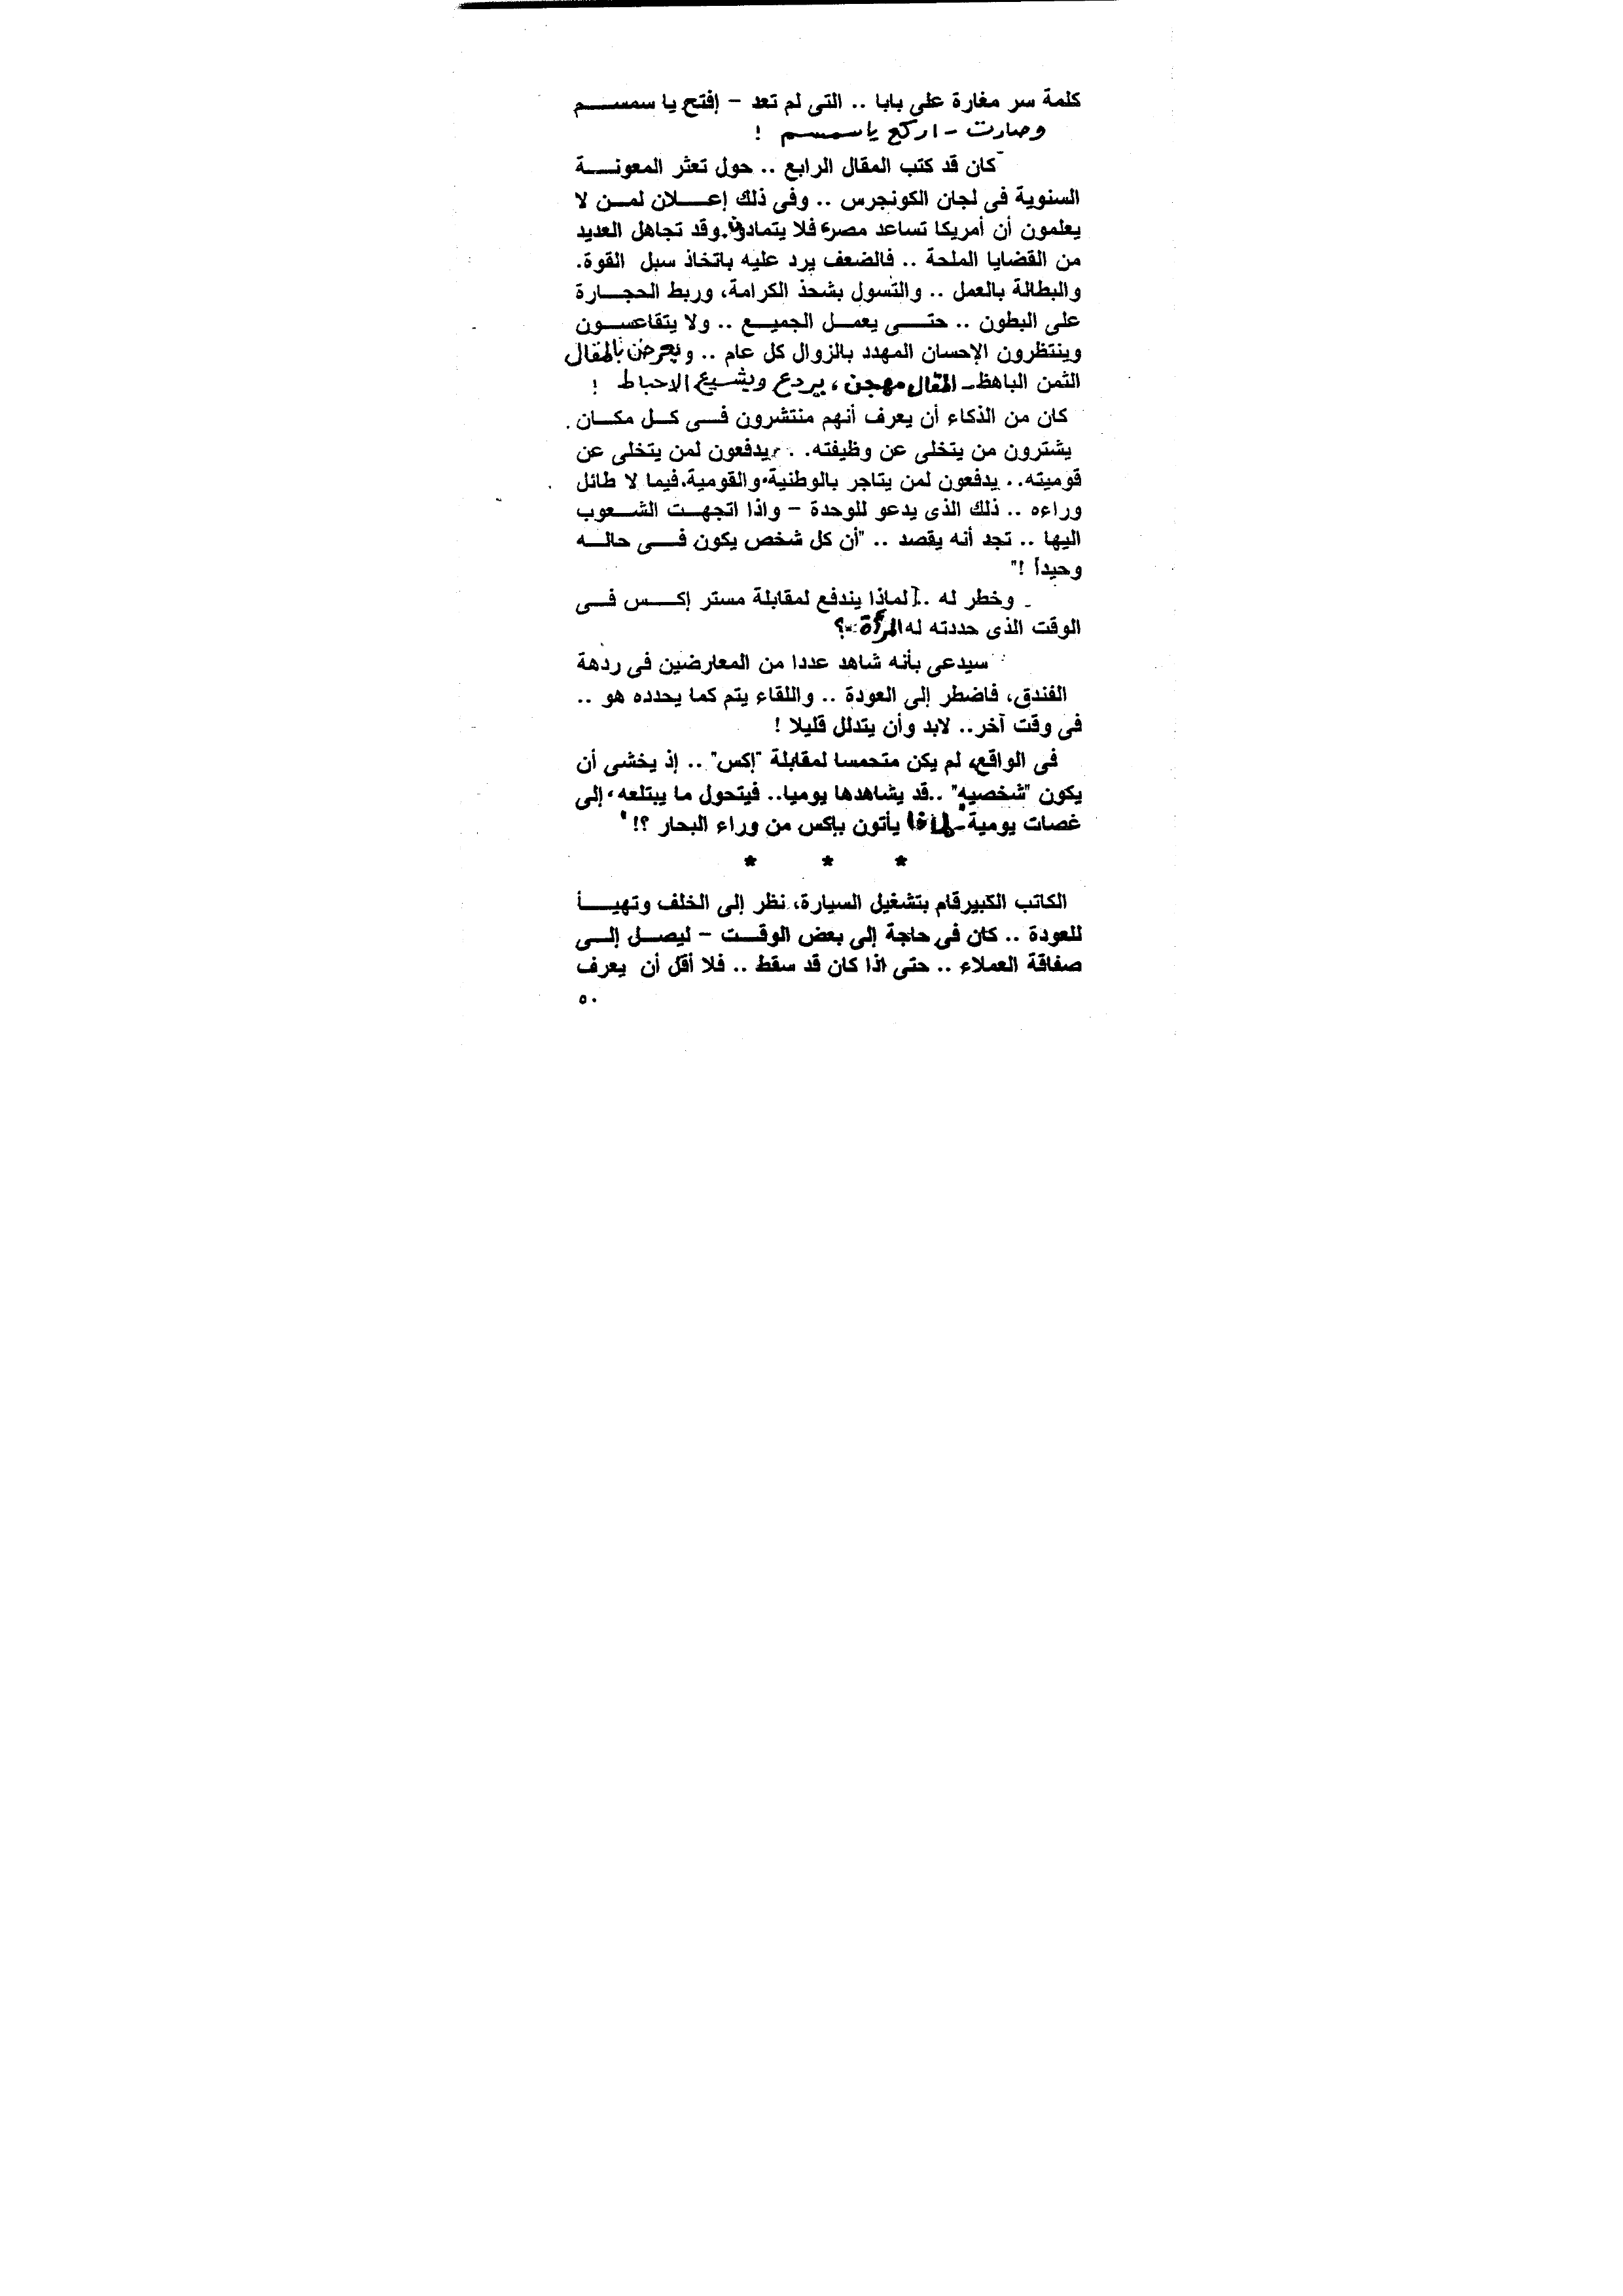 كلمة سر مغارة على بابا .. التى لم تعد – إفتح يا سمسم
وصارت - اركع يا سمسم !
كان قد كتب المقال الرابع .. حول تعثر المعونة
السنوية فى لجان الكونجرس .. وفى ذلك إعلان لمن لا
يعلمون أن أمريكا تساعد مصر، فلا يتمادون. وقد تجاهل العديد
من القضايا الملحة .. فالضعف يرد عليه باتخاذ سبل القوة.
والبطالة بالعمل .. والتسول بشحذ الكرامة، وربط الحجارة
على البطون .. حتى يعمل الجميع .. ولا يتقاعسون
وينتظرون الإحسان المهدد بالزوال كل عام .. ويعرض بالمقال
الثمن الباهظ - المقال مهجن، يردع ويشيع الاحباط !
كان من الذكاء أن يعرف أنهم منتشرون فى كل مكان.
يشترون من يتخلى عن وظيفته. . يدفعون لمن يتخلى عن
قوميته.. يدفعون لمن يتاجر بالوطنية، والقومية، فيما لا طائل
وراءه .. ذلك الذى يدعو للوحدة – واذا اتجهت الشعوب
اليها .. تجد أنه يقصد .. "أن كل شخص يكون فى حاله
وحيداً !"
وخطر له .. لماذا يندفع لمقابلة مستر إكس فى
الوقت الذى حددته له المرأة..؟
سيدعى بأنه شاهد عددا من المعارضين فى ردهة
الفندق، فاضطر إلى العودة .. واللقاء يتم كما يحدده هو ..
فى وقت آخر.. لابد وأن يتدلل قليلا !
فى الواقع، لم يكن متحمسا لمقابلة "إكس" .. إذ يخشى أن
يكون "شخصيه" ..قد يشاهدها يوميا.. فيتحول ما يبتلعه، إلى
غصات يومية - لماذا يأتون بإكس من وراء البحار ؟!
* * *
الكاتب الكبيرقام بتشغيل السيارة، نظر إلى الخلف وتهيأ
للعودة .. كان فى حاجة إلى بعض الوقت – ليصل إلى
صفاقة العملاء .. حتى اذا كان قد سقط .. فلا أقل أن يعرف
٥٠